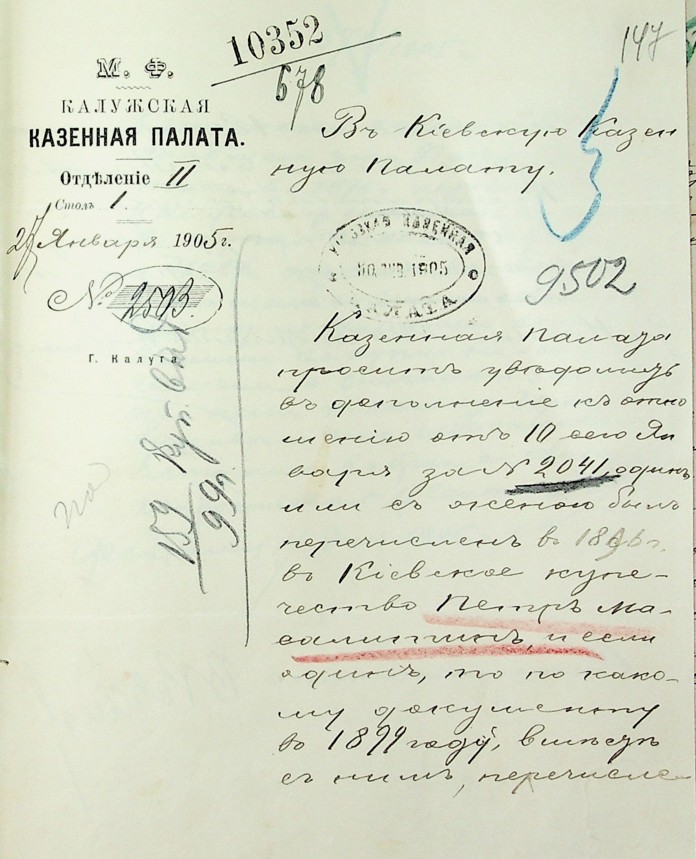 10352
678
147
М. Ф.
КАЛУЖСКАЯ
КАЗЕННАЯ ПАЛАТА.
Отдѣленіе II
Столъ 1.
27 Января 1905 г.
№ 2503.
Г. Калуга
Въ Кіевскую Казен
ную Палату.
КАЗЕННАЯ
30 ЯНВ 1905
ПАЛАТА
9502
152 Куп.
99 г.
Казенная Палата
проситъ увѣдомить
въ дополненіе къ отно
шенію отъ 10 сего Ян
варя за № 2041, одинъ
или съ женою былъ
перечисленъ въ 1896 г.
въ Кіевское купе-
чество Петръ Ма-
салитинъ, и если
одинъ, то по како-
му документу
въ 1899 году, вмѣстѣ
съ нимъ, перечисле-